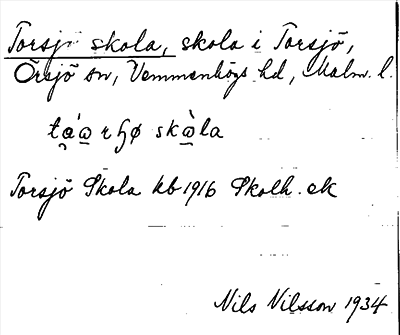 Torsjö skola, skola i Torsjö,
Örsjö sn, Vemmenhögs hd, Malm. l.
ta̯´ω̲rɧø skὼ̲la
Torsjö Skola kb 1916 Skolh. ek
Nils Nilsson 1934